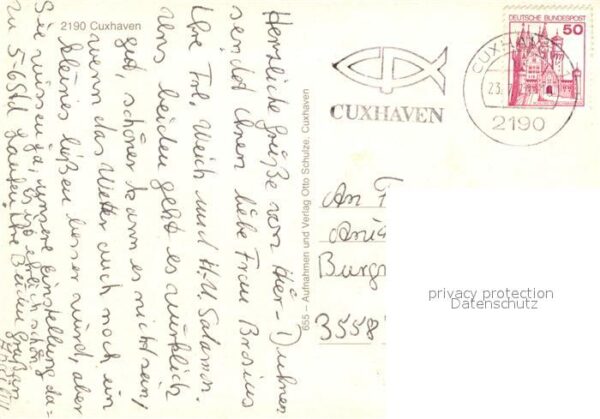 2190 Cuxhaven
Herzliche Grüße von Hier - Duhnen
sendet Ihnen liebe Frau Brosius
Ihre Frl. Weich und H.U. Salamon.
Uns beiden geht es wirklich
gut, schöner kann es nicht sein,
wenn das Wetter auch noch ein
kleines bißen besser wird, aber
Sie wissen ja, unsere Einstellung da-
zu
es ist ehrlich schön
Ihre Beiden grüßen
655 - Aufnahmen und Verlag Otto Schulze, Cuxhaven
CUXHAVEN
DEUTSCHE BUNDESPOST
50
CUXHAVEN
23.
2190
An
Burg
3558
privacy protection
Datenschutz